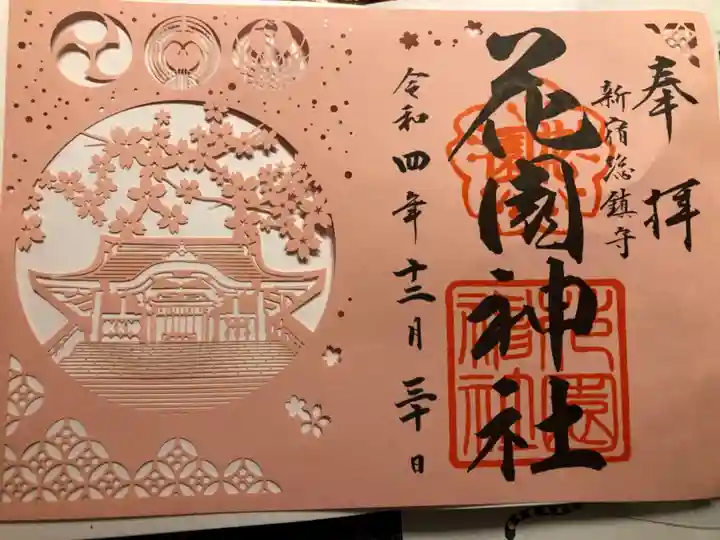 奉拝
新宿総鎮守
花園神社
令和四年十二月三十日
花園神社